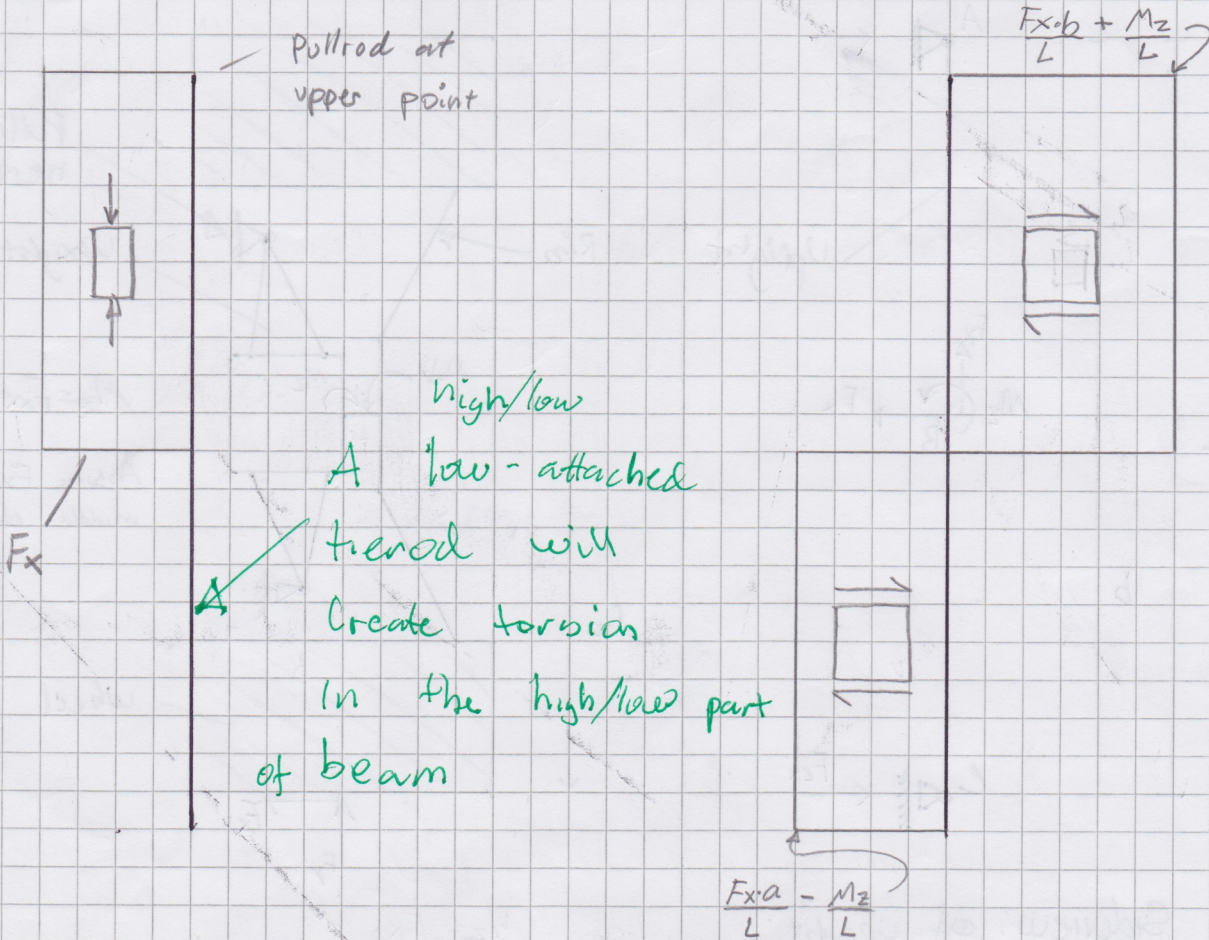 Pullrod at
upper point
Fx·b/L + Mz/L
Fx
high/low
A low-attached
tierod will
Create torsion
In the high/low part
of beam
Fx·a/L - Mz/L